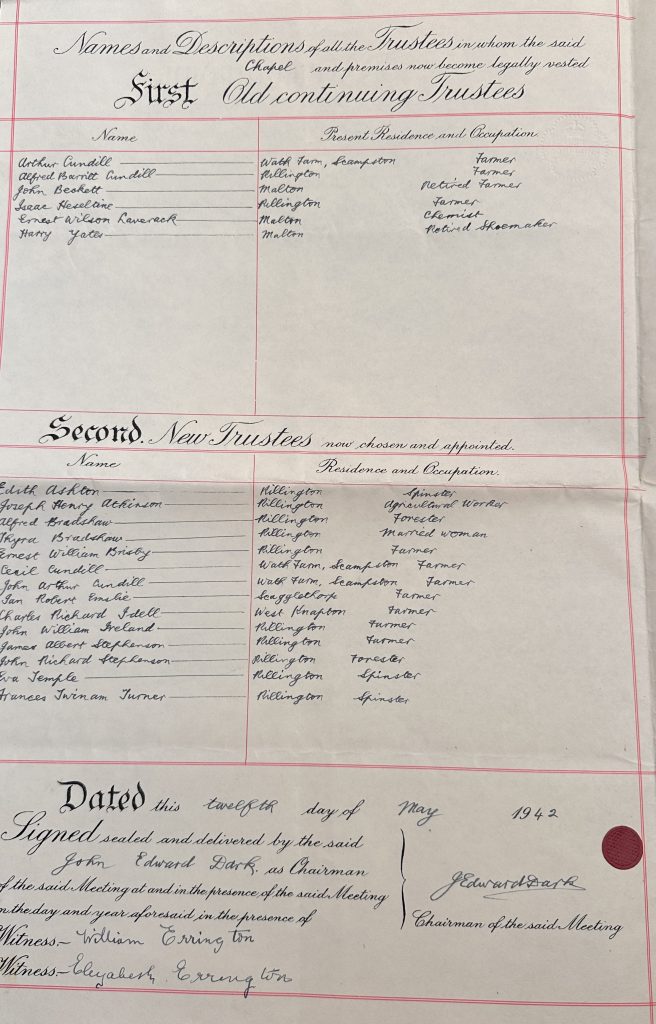 Names and Descriptions of all the Trustees in whom the said
Chapel and premises now become legally vested
First Old continuing Trustees
Name Present Residence and Occupation.
Arthur Cundill Wath Farm, Scampston Farmer
Alfred Barritt Cundill Rillington Farmer
John Beckett Malton Retired Farmer
Isaac Heseltine Rillington Farmer
Ernest Wilson Laverack Malton Chemist
Harry Yates Malton Retired Shoemaker
Second. New Trustees now chosen and appointed.
Name Residence and Occupation.
Edith Ashton Rillington Spinster
Joseph Henry Atkinson Rillington Agricultural Worker
Alfred Bradshaw Rillington Forester
Thyra Bradshaw Rillington Married woman
Ernest William Brisby Rillington Farmer
Cecil Cundill Wath Farm, Scampston Farmer
John Arthur Cundill Wath Farm, Scampston Farmer
Ian Robert Emslie Scagglethorpe Farmer
Charles Richard Idell West Knapton Farmer
John William Ireland Rillington Farmer
James Albert Stephenson Rillington Farmer
John Richard Stephenson Rillington Forester
Eva Temple Rillington Spinster
Frances Twinam Turner Rillington Spinster
Dated this twelfth day of May 1942
Signed sealed and delivered by the said
John Edward Dark, as Chairman
of the said Meeting at and in the presence of the said Meeting
on the day and year aforesaid in the presence of
JEdwardDark
Chairman of the said Meeting
Witness.- William Errington
Witness.- Elizabeth Errington